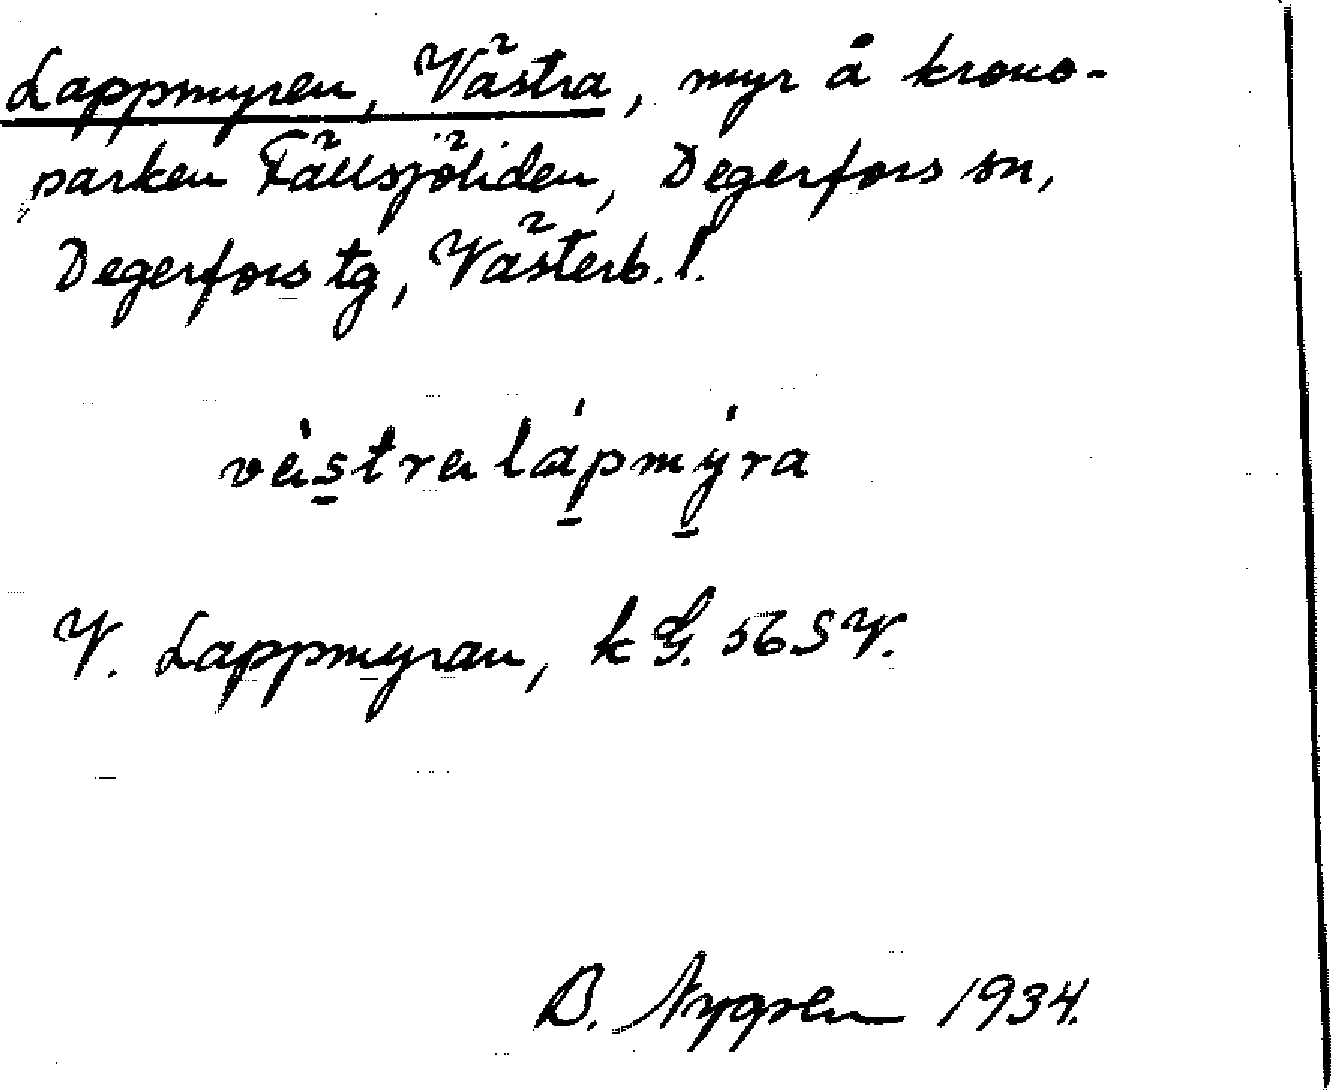 Lappmyren, Västra, myr å krono-
parken Fällsjöliden, Degerfors sn,
Degerfors tg, Västerb. l.
västra lápmýra
V. Lappmyran, k G. 56 SV.
B. Nygren 1934.